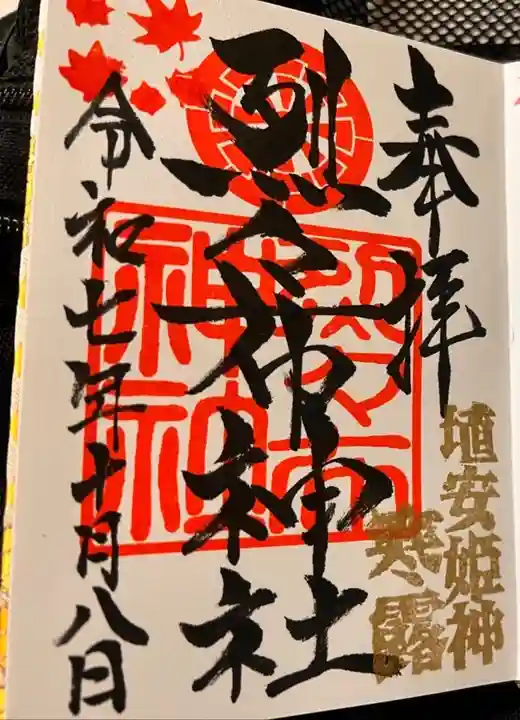 奉拝
埴安姫神
寒露
烈々布神社
烈々布
神社
令和七年十月八日